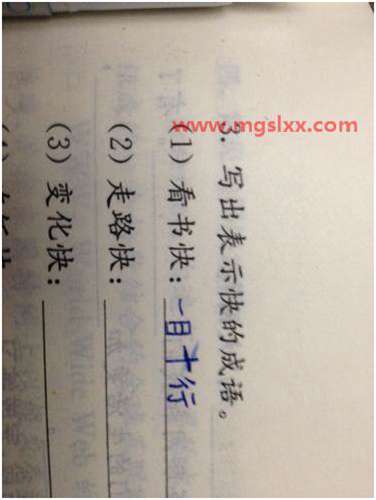 www.mgslxx.com
3. 写出表示快的成语。
(1) 看书快：一目十行
(2) 走路快：
(3) 变化快：